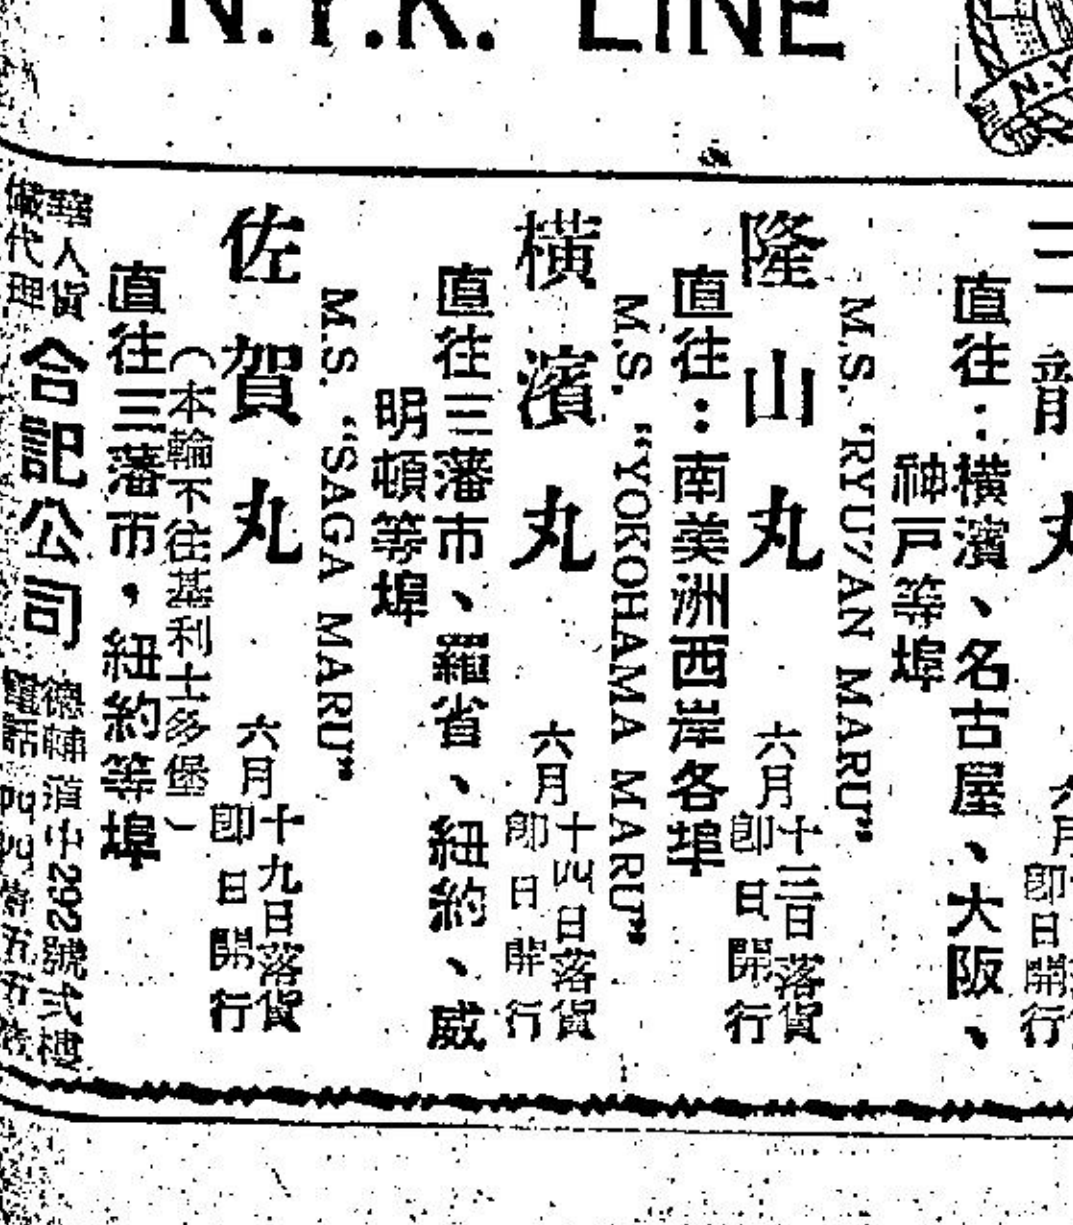 N.Y.K. LINE
N.Y
三
丸
月
即日開行
直往：橫濱、名古屋、大阪、
神戸等埠
M.S. "RYUZAN MARU"
隆山丸
六月十三日落貨
即日開行
直往：南美洲西岸各埠
M.S. "YOKOHAMA MARU"
橫濱丸
六月十四日落貨
即日開行
直往三藩市、羅省、紐約、威
明頓等埠
M.S. "SAGA MARU"
佐賀丸
六月十九日落貨
即日開行
（本輪不往基利士多堡）
直往三藩市，紐約等埠
華人貨
儎代理
合記公司
德輔道中292號弍樓
電話